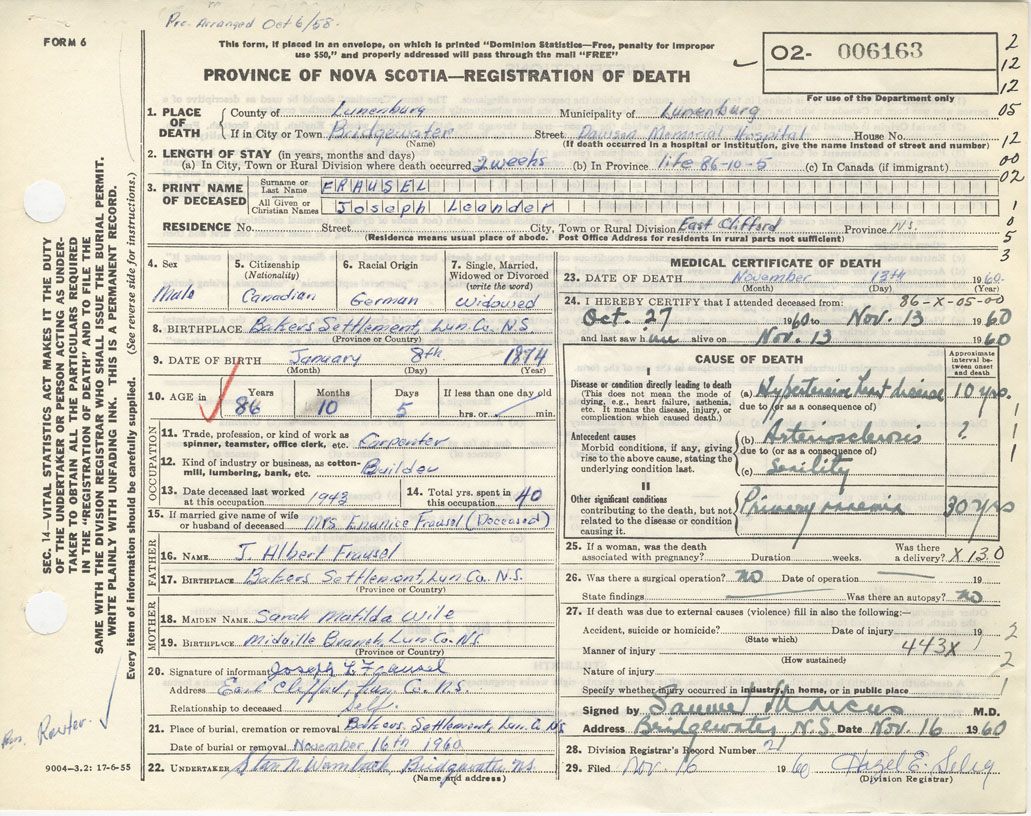 Pre-Arranged Oct 6/58.
FORM 6
This form, if placed in an envelope, on which is printed "Dominion Statistics—Free, penalty for improper
use $50," and properly addressed will pass through the mail "FREE"
PROVINCE OF NOVA SCOTIA—REGISTRATION OF DEATH
O2- 006163
For use of the Department only
2
12
12
05
12
00
02
1
0
5
3
1. PLACE OF DEATH { County of Lunenburg Municipality of Lunenburg
If in City or Town Bridgewater Street Dawson Memorial Hospital House No.
(Name) (If death occurred in a hospital or institution, give the name instead of street and number)
2. LENGTH OF STAY (in years, months and days)
(a) In City, Town or Rural Division where death occurred 2 weeks (b) In Province life 86-10-5 (c) In Canada (if immigrant)
3. PRINT NAME OF DECEASED { Surname or Last Name FRAUSEL
All Given or Christian Names Joseph Leander
RESIDENCE No. Street City, Town or Rural Division East Clifford Province N.S.
(Residence means usual place of abode. Post Office Address for residents in rural parts not sufficient)
4. Sex Male
5. Citizenship (Nationality) Canadian
6. Racial Origin German
7. Single, Married, Widowed or Divorced (write the word) Widowed
8. BIRTHPLACE Bakers Settlement, Lun. Co. N.S.
(Province or Country)
9. DATE OF BIRTH January 8th 1874
(Month) (Day) (Year)
10. AGE in Years 86 Months 10 Days 5 If less than one day old hrs. or min.
OCCUPATION
11. Trade, profession, or kind of work as spinner, teamster, office clerk, etc. Carpenter
12. Kind of industry or business, as cotton-mill, lumbering, bank, etc. Builder
13. Date deceased last worked at this occupation 1943
14. Total yrs. spent in this occupation 40
15. If married give name of wife or husband of deceased Mrs Eunice Frausel (Deceased)
FATHER
16. NAME J. Albert Frausel
17. BIRTHPLACE Bakers Settlement, Lun Co. N.S.
(Province or Country)
MOTHER
18. MAIDEN NAME Sarah Matilda Wile
19. BIRTHPLACE Midville Branch, Lun. Co. N.S.
(Province or Country)
20. Signature of informant Joseph L. Frausel
Address East Clifford, Lun. Co. N.S.
Relationship to deceased Self.
21. Place of burial, cremation or removal Bakers Settlement, Lun. Co NS
Date of burial or removal November 16th 1960
22. UNDERTAKER Bridgewater N.S.
(Name and address)
MEDICAL CERTIFICATE OF DEATH
23. DATE OF DEATH November 13th 1960
(Month) (Day) (Year)
24. I HEREBY CERTIFY that I attended deceased from: 86-X-05-00
Oct. 27 1960 to Nov. 13 1960
and last saw him alive on Nov. 13 1960
CAUSE OF DEATH
Approximate interval between onset and death
I
Disease or condition directly leading to death
(This does not mean the mode of dying, e.g., heart failure, asthenia, etc. It means the disease, injury, or complication which caused death.)
(a) Hypertensive heart disease 10 yrs.
due to (or as a consequence of)
Antecedent causes
Morbid conditions, if any, giving rise to the above cause, stating the underlying condition last.
(b) Arteriosclerosis ?
due to (or as a consequence of)
(c) Senility
II
Other significant conditions
contributing to the death, but not related to the disease or condition causing it.
Primary anemia 30 yrs
1
1
1
1
25. If a woman, was the death associated with pregnancy? Duration weeks. Was there a delivery? X130
26. Was there a surgical operation? no Date of operation 19
State findings Was there an autopsy? no
27. If death was due to external causes (violence) fill in also the following:—
Accident, suicide or homicide? Date of injury 19
(State which)
Manner of injury 443X
(How sustained)
Nature of injury
Specify whether injury occurred in industry, in home, or in public place
2
2
1
Signed by Samuel Marcus M.D.
Address Bridgewater N.S. Date Nov. 16 1960
28. Division Registrar's Record Number 21
29. Filed Nov. 16 1960 Hazel E. Selig
(Division Registrar)
SEC. 14—VITAL STATISTICS ACT MAKES IT THE DUTY
OF THE UNDERTAKER OR PERSON ACTING AS UNDER-
TAKER TO OBTAIN ALL THE PARTICULARS REQUIRED
IN THE "REGISTRATION OF DEATH" AND TO FILE THE
SAME WITH THE DIVISION REGISTRAR WHO SHALL ISSUE THE BURIAL PERMIT.
WRITE PLAINLY WITH UNFADING INK. THIS IS A PERMANENT RECORD.
Every item of information should be carefully supplied. (See reverse side for instructions.)
9004-3.2: 17-6-55